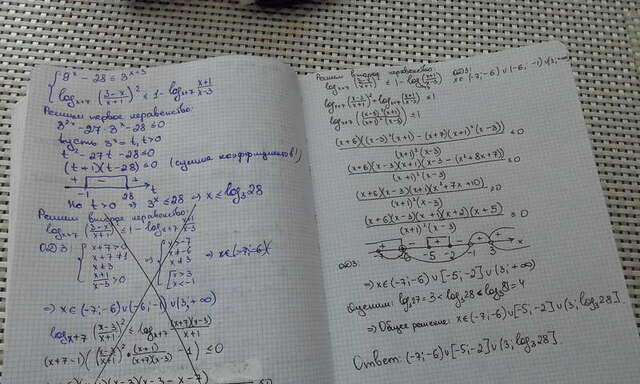 9ˣ - 28 ≤ 3ˣ⁺³
log ₓ₊₇ ((3-x)/(x+1))² ≤ 1 - log ₓ₊₇ (x+1)/(x-3)
Решим первое неравенство:
3²ˣ - 27·3ˣ - 28 ≤ 0
пусть 3ˣ = t, t>0
t² - 27t - 28 ≤ 0
(t+1)(t-28) ≤ 0 (сумма коэффициентов!)
+ - +
-1 28 t
Но t>0 ⇒ 3ˣ ≤ 28 ⇒ x ≤ log₃28
Решим второе неравенство:
log ₓ₊₇ ((3-x)/(x+1))² ≤ 1 - log ₓ₊₇ (x+1)/(x-3)
ОДЗ:
x+7>0
x+7≠1
x≠3
(x+1)/(x-3) >0
x>-7
x≠-6
x≠3
x>3
x<-1
⇒ x∈(-7;-6)
⇒ x∈(-7;-6)∪(-6;-1)∪(3;+∞)
log ₓ₊₇ ((x-3)/(x+1))² ≤ log ₓ₊₇ (x+7)(x-3)/(x+1)
Решим второе неравенство:
ОДЗ: x∈(-7;-6)∪(-6,-1)∪(3;
(x+6)((x-3)²(x+1) - (x+7)(x+1)²(x-3))/((x+1)²(x-3)) ≤ 0
(x+6)(x-3)(x+1)(x-3-(x²+8x+7))/((x+1)²(x-3)) ≤ 0
(x+6)(x-3)(x+1)(x²+7x+10)/((x+1)²(x-3)) ≥ 0
(x+6)(x-3)(x+1)(x+2)(x+5)/((x+1)²(x-3)) ≥ 0
-5 -2 -1 3 x
ОДЗ:
⇒ x∈(-7;-6)∪[-5;-2]∪(3;+∞)
Оценим: log₃27 = 3 < log₃28 ≤ log₃81 = 4
⇒ Общее решение: x∈(-7;-6)∪[-5,-2]∪(3;log₃28]
Ответ: (-7;-6)∪[-5;-2]∪(3;log₃28].